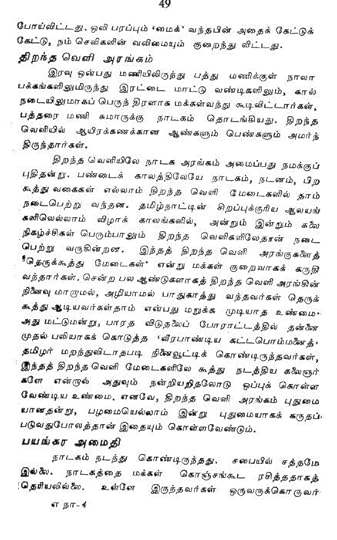 49
போய்விட்டது. ஒலி பரப்பும் 'மைக்' வந்தபின் அதைக் கேட்டுக்
கேட்டு, நம் செவிகளின் வலிமையும் குறைந்து விட்டது.
திறந்த வெளி அரங்கம்
இரவு ஒன்பது மணியிலிருந்து பத்து மணிக்குள் நாலா
பக்கங்களிலுமிருந்து இரட்டை மாட்டு வண்டிகளிலும், கால்
நடையிலுமாகப் பெருந் திரளாக மக்கள்வந்து கூடிவிட்டார்கள்,
பத்தரை மணி சுமாருக்கு நாடகம் தொடங்கியது. திறந்த
வெளியில் ஆயிரக்கணக்கான ஆண்களும் பெண்களும் அமர்ந்
திருந்தார்கள்.
திறந்த வெளியிலே நாடக அரங்கம் அமைப்பது நமக்குப்
புதிதன்று. பண்டைக் காலத்திலேயே நாடகம், நடனம், பிற
கூத்து வகைகள் எல்லாம் திறந்த வெளி மேடைகளில் தாம்
நடைபெற்று வந்தன. தமிழ்நாட்டின் சிறப்புக்குரிய ஆலயங்
களிலெல்லாம் விழாக் காலங்களில், அன்றும் இன்றும் கலை
நிகழ்ச்சிகள் பெரும்பாலும் திறந்த வெளிகளிலேதான் நடை
பெற்று வருகின்றன. இந்தத் திறந்த வெளி அரங்குகளைத்
'தெருக்கூத்து மேடைகள்' என்று மக்கள் குறைவாகக் கருதி
வந்தார்கள். சென்ற பல ஆண்டுகளாகத் திறந்த வெளி அரங்கின்
நினைவு மாறாமல், அழியாமல் பாதுகாத்து வந்தவர்கள் தெருக்
கூத்து ஆடியவர்கள்தாம் என்பது மறுக்க முடியாத உண்மை.
அது மட்டுமன்று, பாரத விடுதலைப் போராட்டத்தில் தன்னை
முதல் பலியாகக் கொடுத்த 'வீரபாண்டிய கட்டபொம்மனைத்'
தமிழர் மறந்துவிடாதபடி நினைவூட்டிக் கொண்டிருந்தவர்கள்,
இந்தத் திறந்த வெளி மேடைகளிலே கூத்து நடத்திய கலைஞர்
களே என்றால் அதுவும் நன்றியறிதலோடு ஒப்புக் கொள்ள
வேண்டிய உண்மை. எனவே, திறந்த வெளி அரங்கம் புதுமை
யானதன்று, பழமையெல்லாம் இன்று புதுமையாகக் கருதப்
படுவதுபோலத்தான் இதையும் கொள்ளவேண்டும்.
பயங்கர அமைதி
நாடகம் நடந்து கொண்டிருந்தது. சபையில் சத்தமே
இல்லை. நாடகத்தை மக்கள் கொஞ்சங்கூட ரசித்ததாகத்
தெரியவில்லை. உள்ளே இருந்தவர்கள் ஒருவருக்கொருவர்
எ நா-4